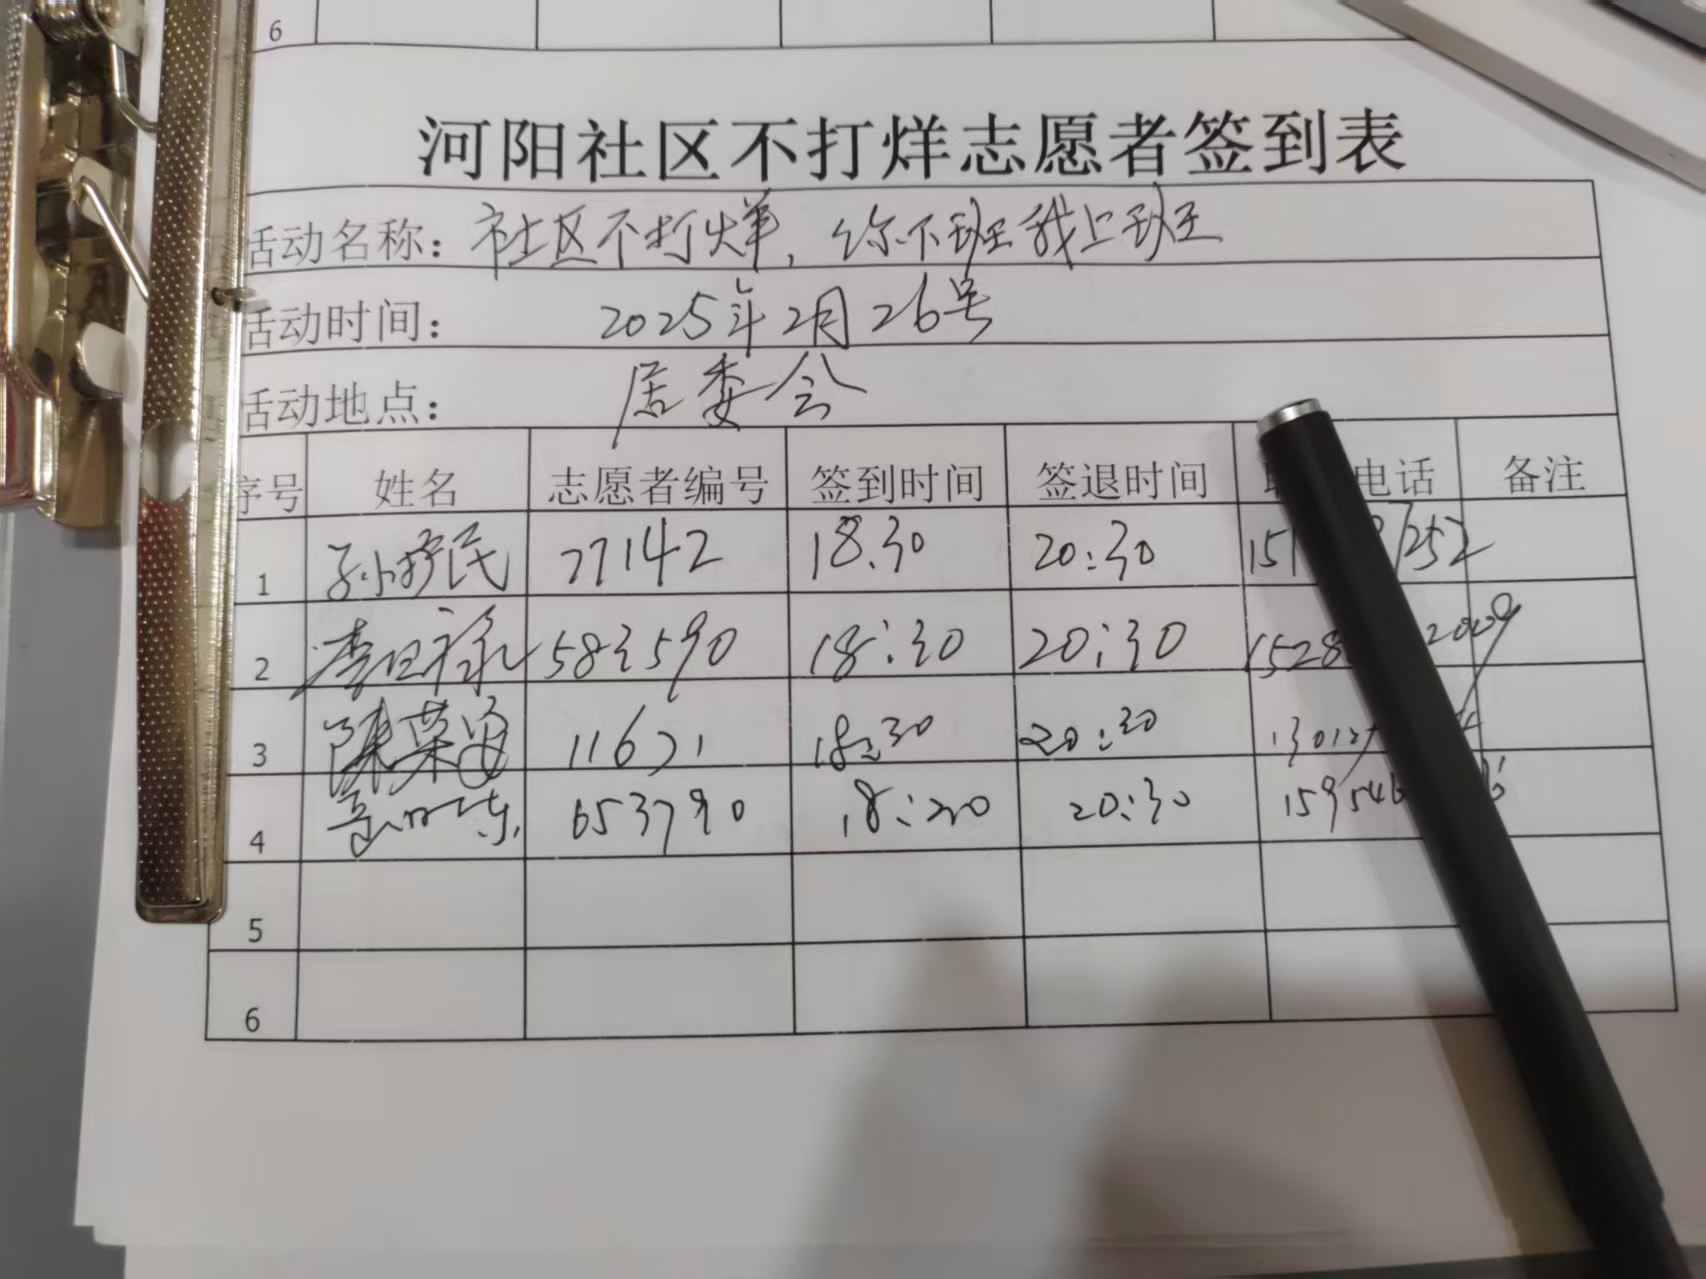 6
河阳社区不打烊志愿者签到表
活动名称：社区不打烊，你下班我上班
活动时间： 2025年2月26号
活动地点： 居委会
序号 姓名 志愿者编号 签到时间 签退时间 电话 备注
1 77142 18.30 20:30 15 252
2 583590 18:30 20:30 1528 2009
3 陈荣 11671 18:30 20:30 13012
4 653790 18:20 20:30 15954
5
6